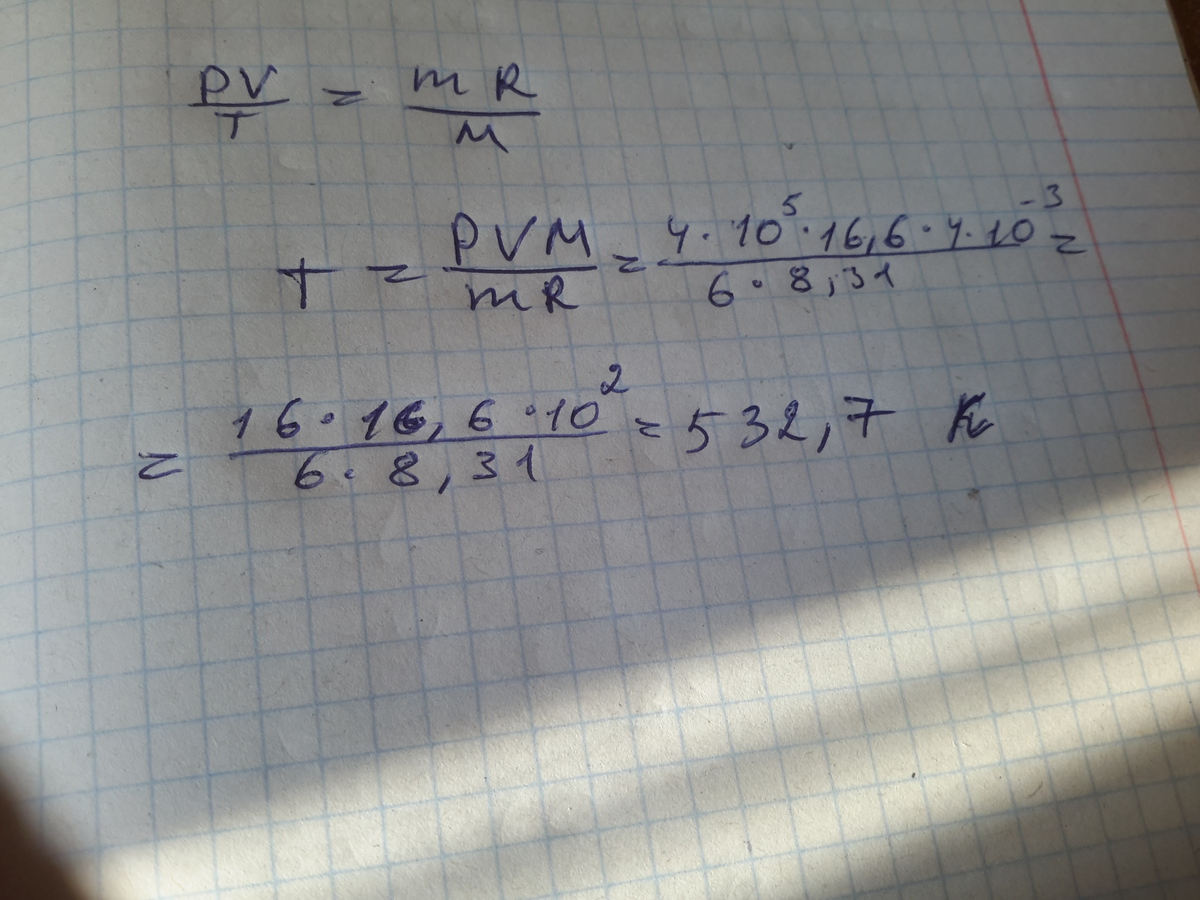 PV/T = mR/M
T = PVM/mR = 4·10⁵·16,6·4·10⁻³/6·8,31 =
= 16·16,6·10²/6·8,31 = 532,7 K